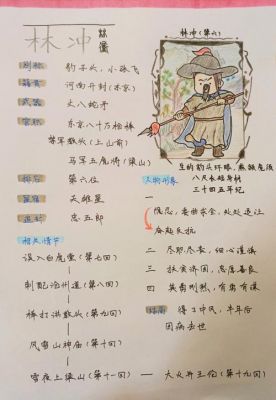 林冲
林冲(第六)
别称 豹子头、小张飞
籍贯 河南开封(东京)
武器 丈八蛇矛
官职 东京八十万禁军
禁军教头(上山前)
马军五虎将(梁山)
生的豹头环眼,燕颔虎须
八尺长短身材
三十四五年纪
排名 第六位
星宿 天雄星
追封 忠武郎
人物形象
一 隐忍、委曲求全、处处退让
奋起反抗
二 尽职尽责,细心谨慎
三 扶贫济困,急属善良
四 英勇刚烈,有勇有谋
相关情节
误入白虎堂(第七回)
刺配沧州道(第八回)
棒打洪教头(第九回)
风雪山神庙(第十回)
雪夜上梁山(第十一回)
火并王伦(第十九回)
结局 得了中风,半年后
因病去世